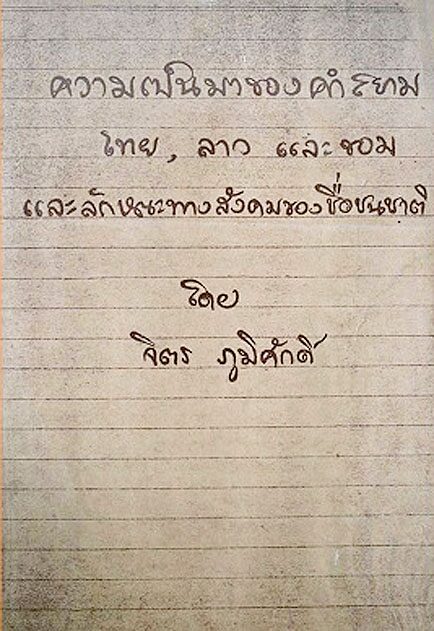 ความเป็นมาของคำสยาม
ไทย, ลาว และขอม
และลักษณะทางสังคมของชื่อชนชาติ
โดย
จิตร ภูมิศักดิ์